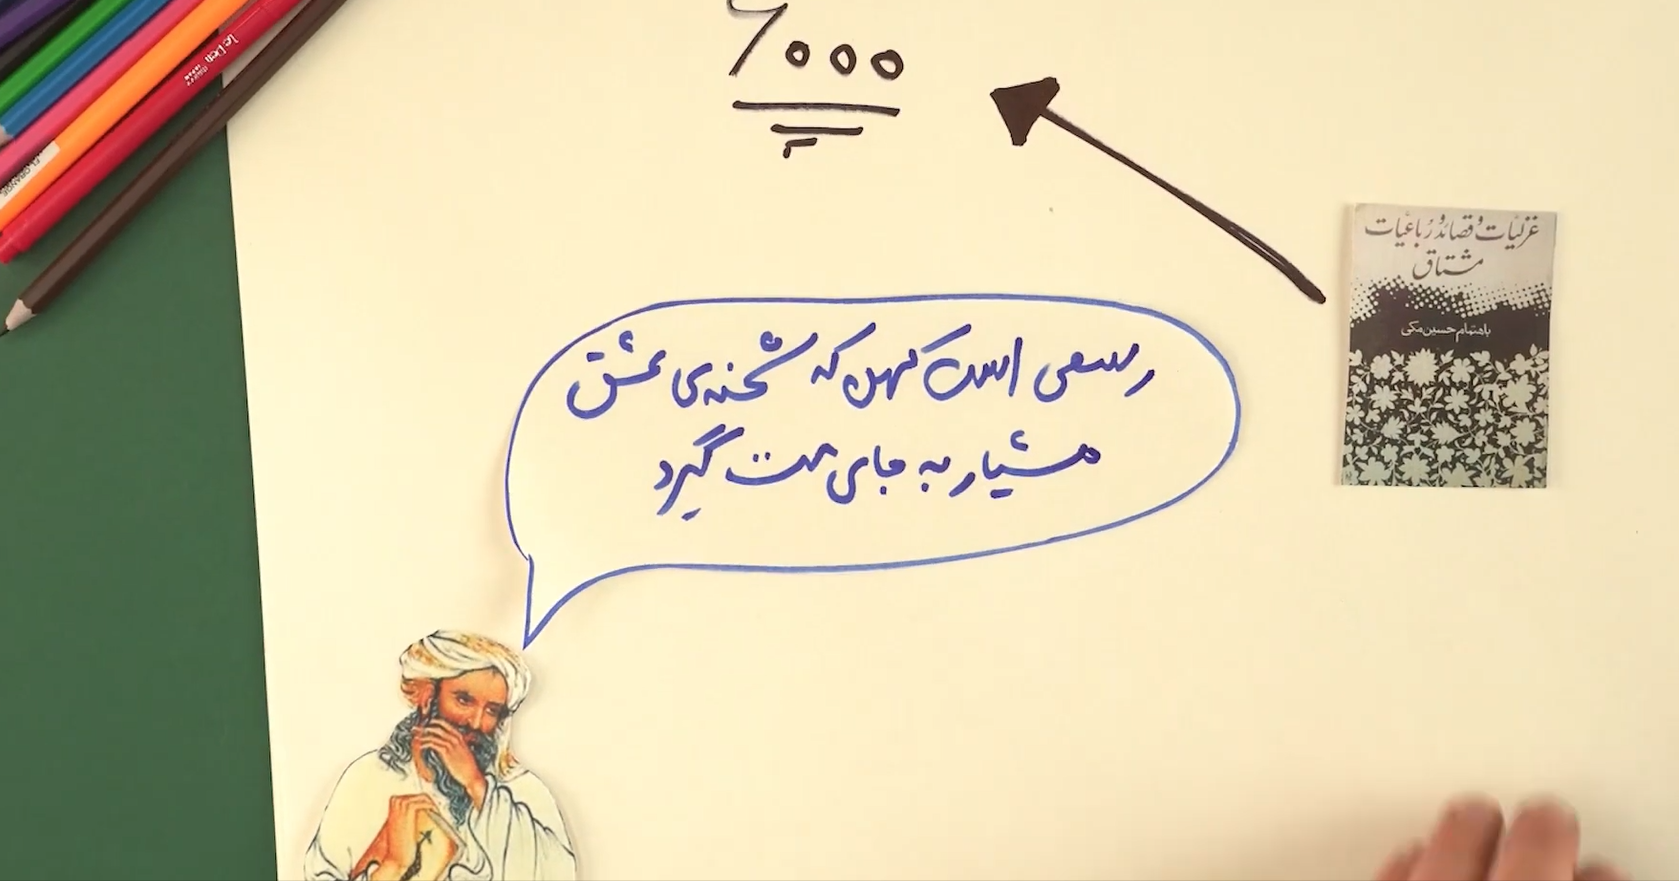 ۶۰۰۰
غزلیات و قصائد و رباعیات
مشتاق
باهتمام حسین مکی
رسمی است کهن که شحنه‌ی عشق
هشیار به جای مست گیرد